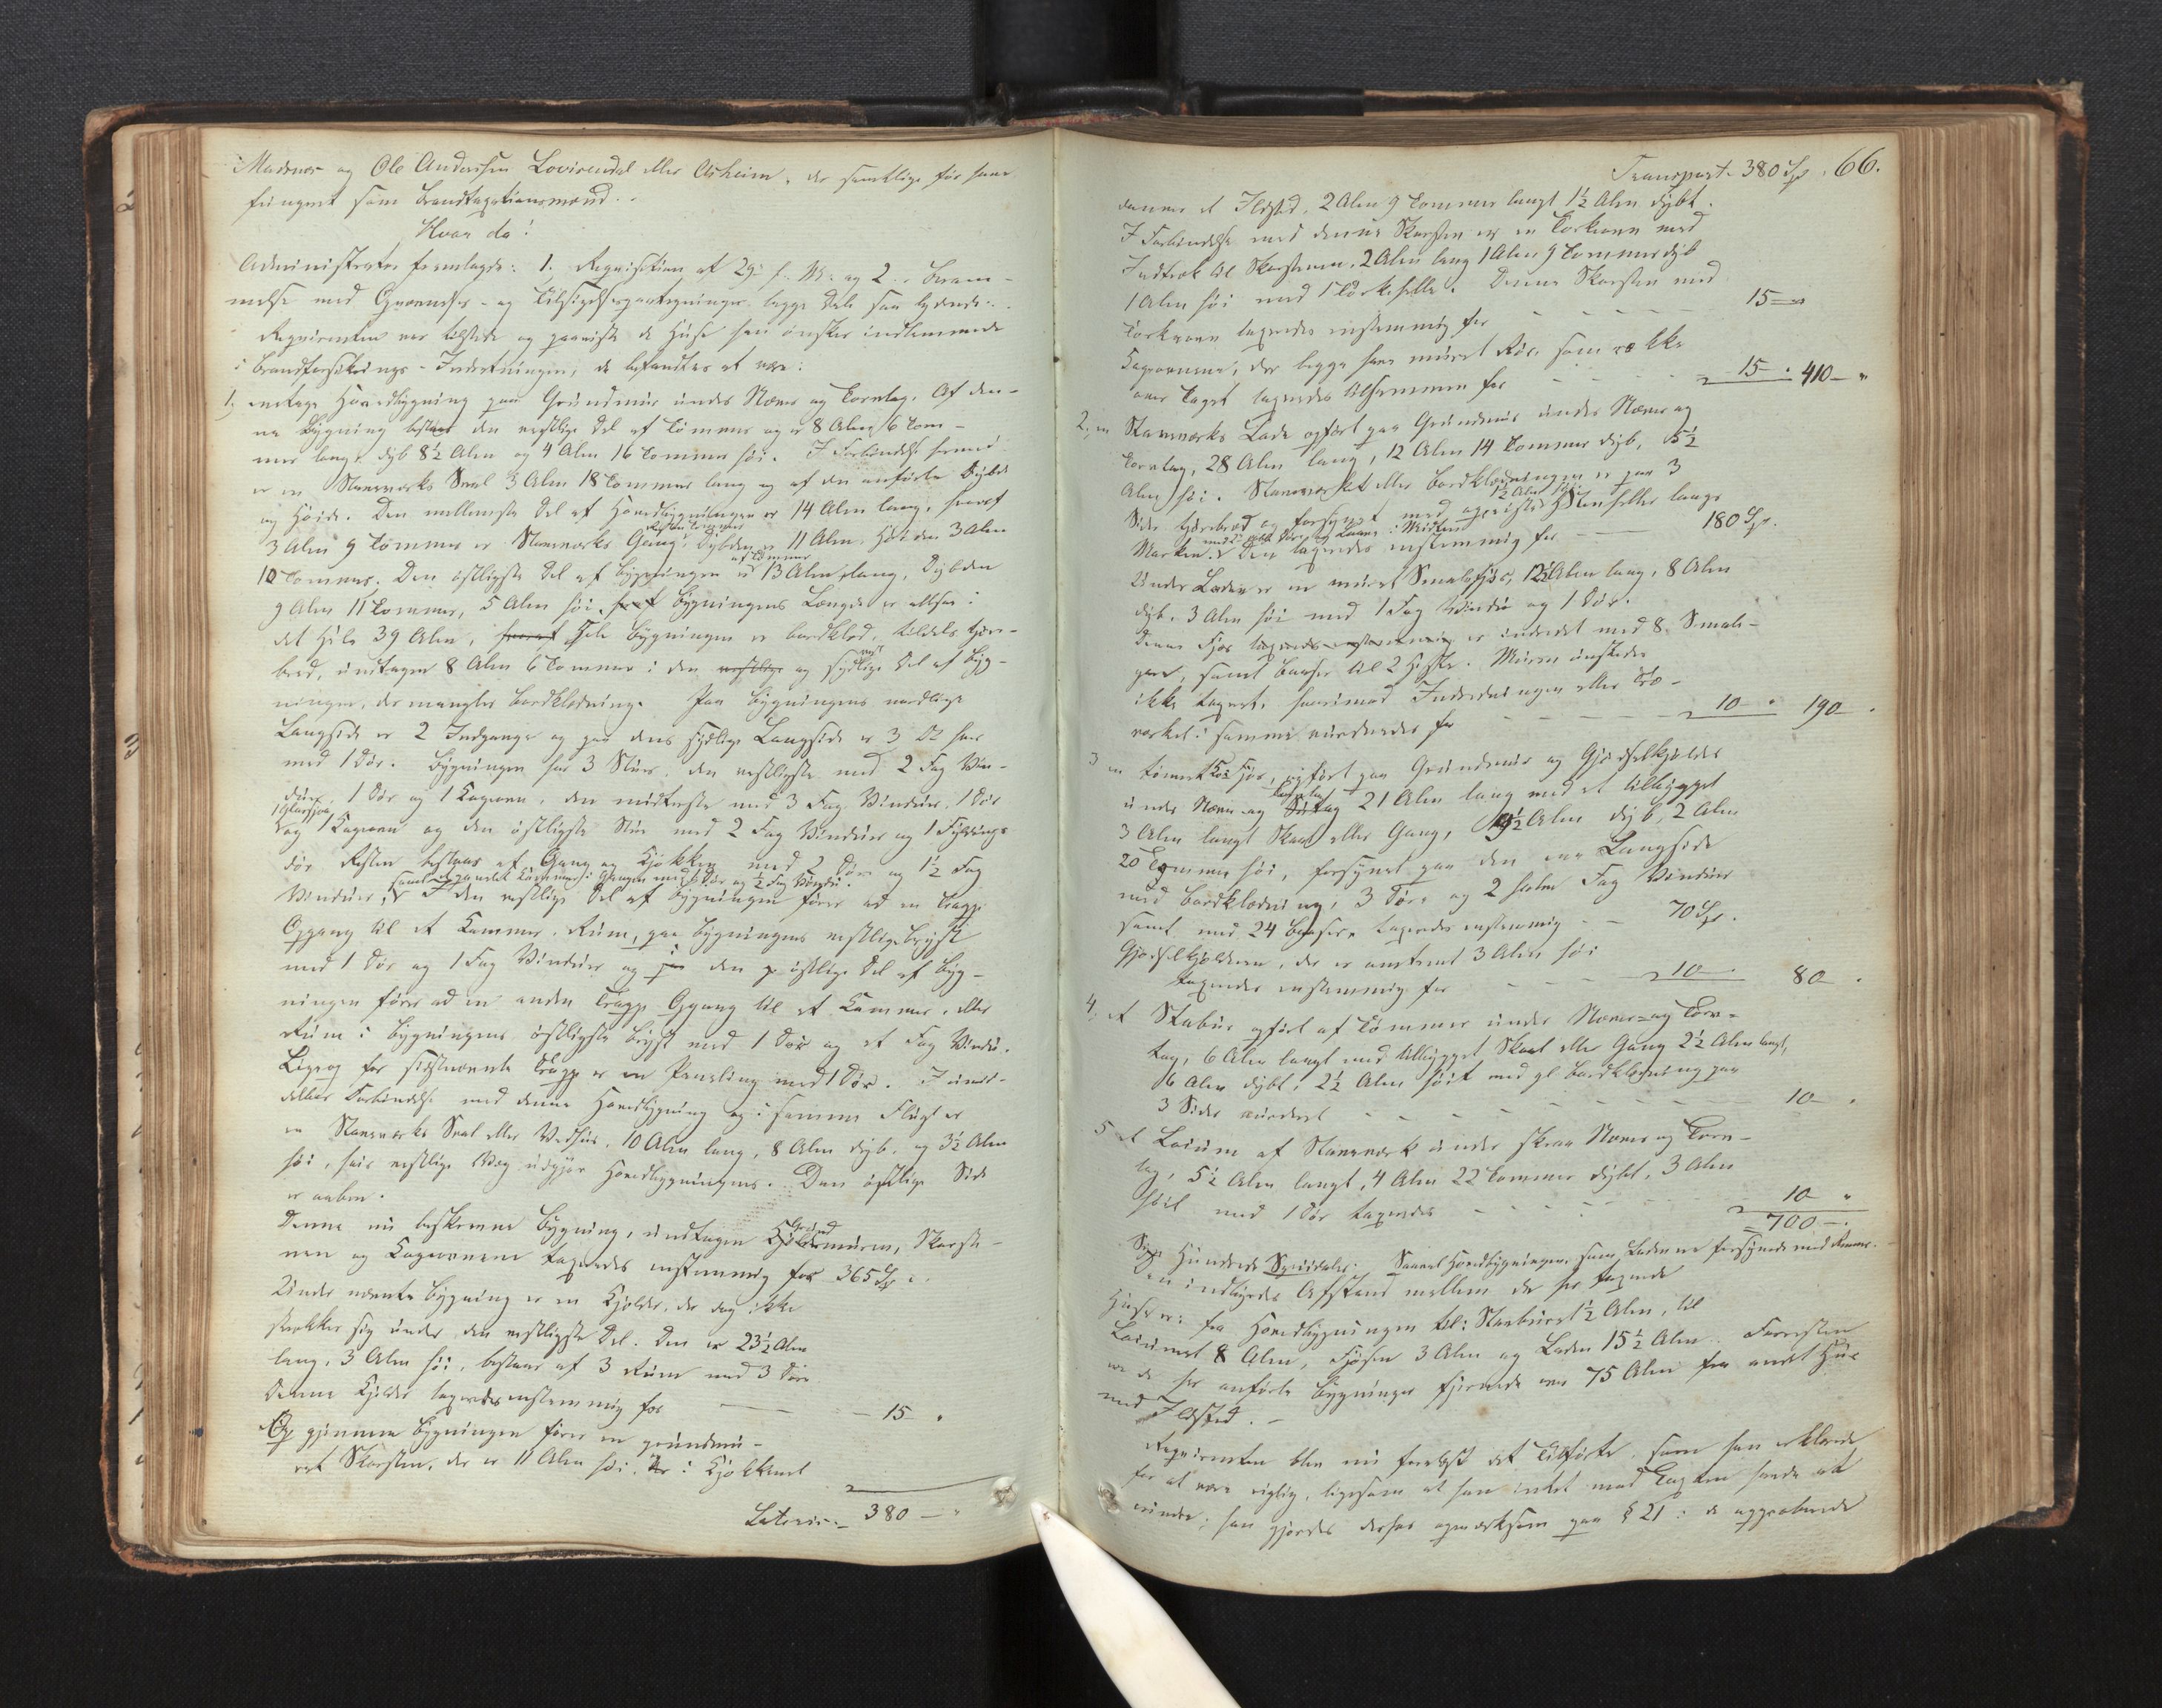 Madsnes og Ole Anderssen Lovisendal eller Asheim, der samtlige før have
fungeret som Brandtaxationsmænd.
Hvor da!
Administrator fremlagde: 1. Requisition af 29de f. M. og 2. Beram-
melse med Grændse- og Tilsigelsespaategninger begge Dele saa lydende:
Requirenten var tilstede og paaviste de Huse han ønsker indlemmede
i Brandforsikrings-Indretningen, de befandtes at være:
1, en etages Hovedbygning paa Grundmur under Næver og Torvtag. Af den-
ne Bygning bestaar den vestlige Del af Tømmer og er 8 Alen 6 Tom-
mer lang, dyb 8½ Alen og 4 Alen 16 Tommer høi. I Forbindelse hermed
er en Staveværks Sval 3 Alen 18 Tommer lang og af den anførte Dybde
og Høide. Den mellemste Del af Hovedbygningen er 14 Alen lang, hvoraf
Resten Tømmer
3 Alen 9 Tommer er Staveværks Gang, Dybden er 11 Alen, Høiden 3 Alen
af Tømmer
10 Tommer. Den østligste Del af Bygningen er 13 Alen lang, Dybden
9 Alen 11 Tommer, 5 Alen høi, hvoraf Bygningens Længde er altsaa i
det Hele 39 Alen, hvoraf Hele Bygningen er bordklæd, tildels tjære-
vest
bred, undtagen 8 Alen 6 Tommer i den vestlige og sydlige Del af Byg-
ningen, der mangler Bordklædning. Paa Bygningens nordlige
Langside er 2 Indgange og paa dens sydlige Langside er 3 Do hver
med 1 Dør. Bygningen har 3 Stuer, den vestligste med 2 Fag Vin-
duer, 1 Dør og 1 Kagovn, den midterste med 3 Fag Vinduer, 1 Dør
og 1 Kagovn og den østligste Stue med 2 Fag Vinduer og 1 Fyldings-
dør. Resten bestaar af Gang og Kjøkken med 2 Døre og 1½ Fag
samt et panelet Kammer i Gangen med 1 Dør og ½ Fag Vindu.
Vinduer, I den vestlige Del af Bygningen fører ad en Trappe
Opgang til et Kammer, Rum, paa Bygningens vestlige Bryst
med 1 Dør og 1 Fag Vinduer og i den østlige Del af Byg-
ningen fører ad en anden Trappe Opgang til et Kammer, eller
Rum i Bygningens østligste Bryst med 1 Dør og et Fag Vindu.
Ligeog for sidstnævnte Trappe er en Paneling med 1 Dør. I umid-
delbar Forbindelse med denne Hovedbygning og i samme Flugt er
en Staveværks Sval eller Vedhus, 10 Alen lang, 8 Alen dyb og 3½ Alen
høi, hvis vestlige Væg udgjør Hovedbygningens. Den østlige Side
er aaben.
Grund
Denne nu beskrevne Bygning, undtagen Kjældermuren, Skorste-
nen og Kagovnene taxeredes enstemmig for 365 Sp.
Under nævnte Bygning er en Kjelder, der dog ikke
strækker sig under den vestligste Del. Den er 23½ Alen
lang, 3 Alen høi, bestaar af 3 Rum med 3 Døre
Denne Kjelder taxeredes enstemmig for - 15 "
Op gjennem Bygningen fører en grundmu-
ret Skorsten, der er 11 Alen høi, der i Kjøkkenet
Lateris:- 380 - "
Transport. 380 Sp. 66.
danner et Ildsted, 2 Alen 9 Tommer langt 1½ Alen dybt.
I Forbindelse med denne Skorsten er en Torkovn med
Indtræk til Skorstenen, 2 Alen lang 1 Alen 9 Tommer dyb
1 Alen høi med 1 Torkehelle. Denne Skorsten med
Torkovn taxeredes enstemmig for - - - - - 15 - "
Kagovnene, der begge have muret Rør, som række
over Taget taxeredes tilsammen for - - - 15 - " 410 - "
2, en Staveværks Lade opført paa Grundmur under Næver og
Torvtag, 28 Alen lang, 12 Alen 14 Tommer dyb, 5½
Alen høi. Staveværket eller Bordklædningen er paa 3
1½ Alen høie
Sider tjærebred og forsynet med opreiste Stenheller langs
Marken. Den taxeredes enstemmig for - - 180 Sp.
Under Laden er en muret Smalefjøs, 12½ Alen lang, 8 Alen
dyb, 3 Alen høi med 1 Fag Vindu og 1 Dør.
Denne Fjøs taxeredes enstemmig er indredet med 8 Smale-
garer, samt Baaser til 2 Heste. Muren ønskedes
ikke taxeret, hvorimod Indredningen eller Træ-
værket i samme vurderedes for - - - - 10 " 190 - "
3 en tømret Kofjøs, opført paa Grundmur og Gjødselkjelder
under Næver og Torvtag 21 Alen lang med et tilbygget
3 Alen langt Skaat eller Gang, 9½ Alen dyb, 2 Alen
20 Tommer høi, forsynet paa den ene Langside
med Bordklædning, 3 Døre og 2 halve Fag Vinduer
samt med 24 Baaser, taxeredes enstemmig - - 70 Sp.
Gjødselkjelderen, der er omtrent 3 Alen høi
taxeredes enstemmig for - - - - 10 - 80 "
4, et Stabur opført af Tømmer under Næver og Torv-
tag, 6 Alen langt med tilbygget Skaat eller Gang 2½ Alen langt,
6 Alen dybt, 2½ Alen høit med gl Bordklædning paa
3 Sider vurderet - - - - - - - 10 - "
5 et Loium af Staveværk under skraa Næver og Torv-
tag, 5½ Alen langt, 4 Alen 22 Tommer dybt, 3 Alen
høit med 1 Dør taxeredes - - - - 10 "
= 700 - "
Syv Hundrede Speciedaler. Saavel Hovedbygningen som Laden er forsynede med Render.
en indbyrdes Afstand mellem de her taxerede
Huse er: fra Hovedbygningen til: Staburet ½ Alen, til
Loiumet 8 Alen, Fjøsen 3 Alen og Laden 15½ Alen. Forresten
er de her anførte Bygninger fjernede over 75 Alen fra andet Hus
med Ildsted. -
Requirenten blev nu forelæst det Tilførte, som han erklærede
for at være rigtig, ligesom at han intet mod Taxten havde at
erindre; han gjordes derhos opmerksom paa § 21 i de approberede